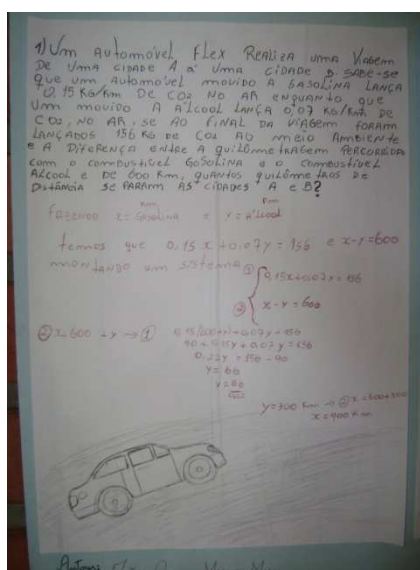 1) Um Automóvel Flex Realiza uma Viagem
De uma cidade A a uma cidade B. Sabe-se
que um automóvel movido a gasolina lança
0,15 Kg/Km de CO2 no ar enquanto que
um movido a álcool lança 0,07 Kg/Km de
CO2, no ar, se ao final da viagem foram
lançados 156 Kg de CO2 ao meio ambiente
e a diferença entre a quilômetragem percorrida
com o combustível gasolina e o combustível
Alcool é de 600 Km, quantos quilômetros de
Distância separam as cidades A e B?
Km Km
fazendo x = gasolina e y = Álcool
temos que 0,15x + 0,07y = 156 e x - y = 600
montando um sistema
① 0,15x + 0,07y = 156
② x - y = 600
② x = 600 + y → ① 0,15(600 + y) + 0,07y = 156
90 + 0,15y + 0,07y = 156
0,22y = 156 - 90
y = 66
y = 66
0,22
y = 300 Km → ② x = 600 + 300
x = 900 Km